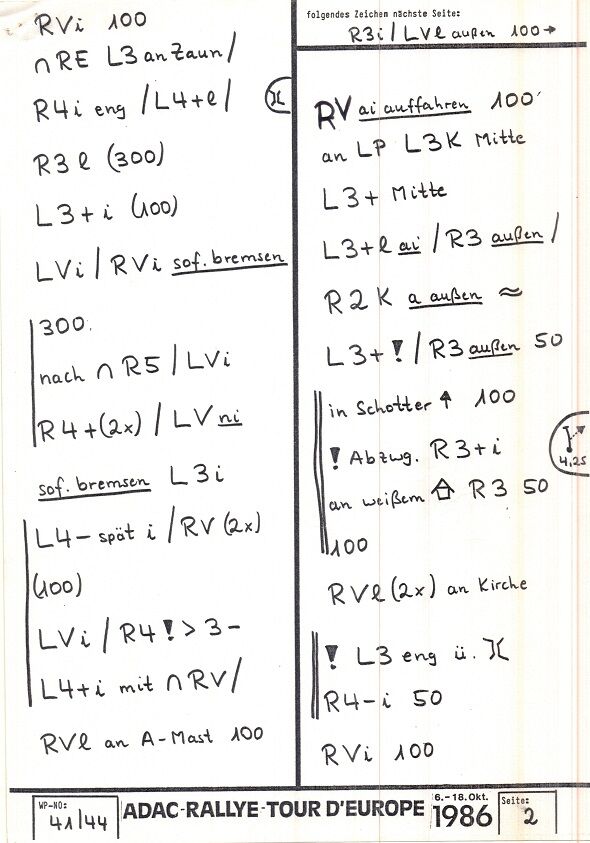 RVi 100
∩RE L3 an Zaun/
R4i eng /L4+l/
R3l (300)
L3+i (100)
LVi/RVi sof. bremsen
300.
nach ∩ R5/LVi
R4+(2x)/LV ni
sof. bremsen L3i
L4- spät i /RV (2x)
(100)
LVi/R4!>3-
L4+i mit ∩RV/
RVl an A-Mast 100
folgendes Zeichem nächste Seite:
R3i/LVl außen 100→
RV ai auffahren 100
an LP L3K Mitte
L3+ Mitte
L3+l ai/R3 außen/
R2K a außen ≈
L3+!/R3 außen 50
in Schotter ↑ 100
! Abzwg. R3+i
4,25
an weißem ⇧ R3 50
100
RVl (2x) an Kirche
! L3 eng ü. )(
R4-i 50
RVi 100
WP-NO:
41/44
ADAC-RALLYE-TOUR D'EUROPE
6.-18.Okt.
1986
Seite:
2